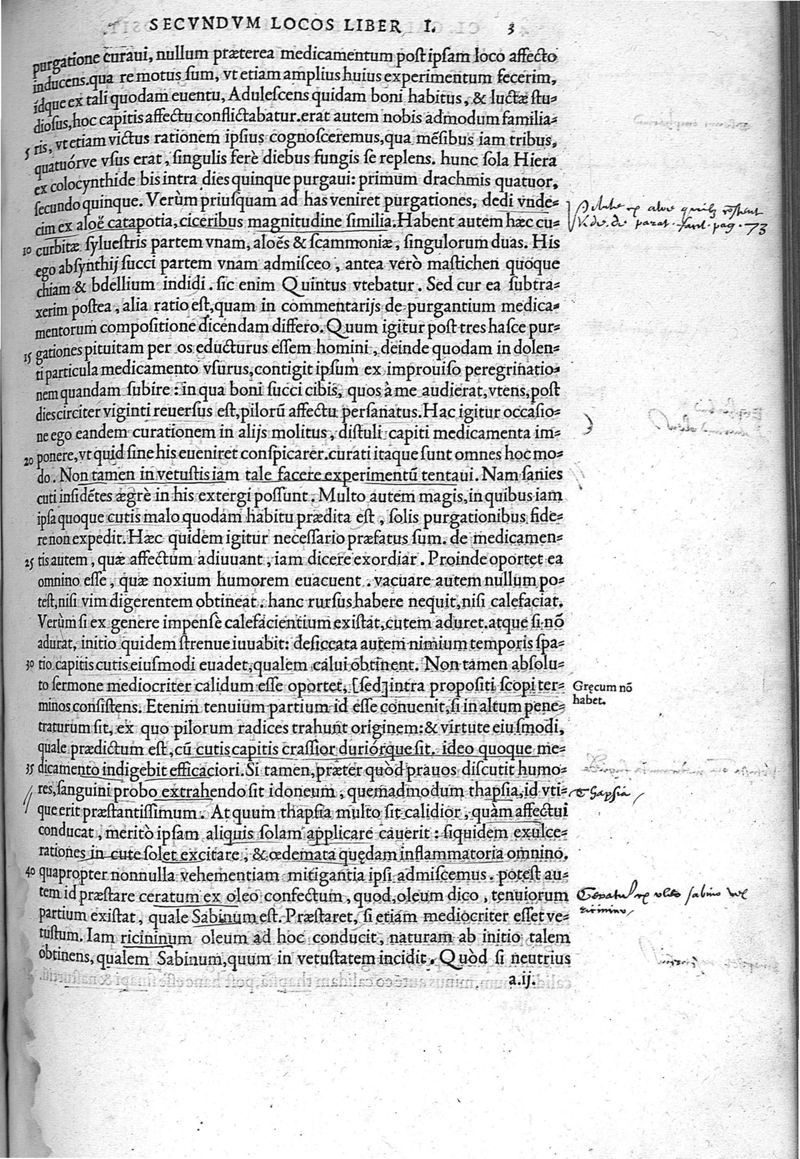 SECVNDVM LOCOS LIBER I. 3
purgatione curaui, nullum præterea medicamentum post ipsam loco affecto
inducens. qua re motus sum, vt etiam amplius huius experimentum fecerim,
idque ex tali quodam euentu, Adulescens quidam boni habitus, & luctæ stu-
diosus, hoc capitis affectu conflictabatur. erat autem nobis admodum familia-
5 ris, vt etiam victus rationem ipsius cognosceremus, qua mẽsibus iam tribus,
quatuórve vsus erat, singulis ferè diebus fungis se replens. hunc sola Hiera
ex colocynthide bis intra dies quinque purgaui: primum drachmis quatuor,
secundo quinque. Verùm priusquam ad has veniret purgationes, dedi vnde-
cim ex aloë catapotia, ciceribus magnitudine similia. Habent autem hæc cu-
10 curbitæ syluestris partem vnam, aloës & scammoniæ, singulorum duas. His
ego absynthij succi partem vnam admisceo, antea verò mastichen quoque
chiam & bdellium indidi. sic enim Quintus vtebatur. Sed cur ea subtra-
xerim postea, alia ratio est, quam in commentarijs de purgantium medica-
mentorum compositione dicendam differo. Quum igitur post tres hasce pur-
15 gationes pituitam per os educturus essem homini, deinde quodam in dolen-
ti particula medicamento vsurus, contigit ipsum ex improuiso peregrinatio-
nem quandam subire: in qua boni succi cibis, quos à me audierat, vtens, post
dies circiter viginti reuersus est, pilorũ affectu persanatus. Hac igitur occasio-
ne ego eandem curationem in alijs molitus, distuli capiti medicamenta im-
20 ponere, vt quid sine his eueniret conspicarer. curati itaque sunt omnes hoc mo-
do. Non tamen in vetustis iam tale facere experimentũ tentaui. Nam sanies
cuti insidẽtes ægrè in his extergi possunt. Multo autem magis, in quibus iam
ipsa quoque cutis malo quodam habitu prædita est, solis purgationibus fide-
re non expedit. Hæc quidem igitur necessario præfatus sum. de medicamen-
25 tis autem, quæ affectum adiuuant, iam dicere exordiar. Proinde oportet ea
omnino esse, quæ noxium humorem euacuent. vacuare autem nullum po-
test, nisi vim digerentem obtineat. hanc rursus habere nequit, nisi calefaciat.
Verùm si ex genere impensè calefacientium existat, cutem aduret. atque si nõ
adurat, initio quidem strenue iuuabit: desiccata autem nimium temporis spa-
30 tio capitis cutis eiusmodi euadet, qualem calui obtinent. Non tamen absolu-
to sermone mediocriter calidum esse oportet, [sed] intra propositi scopi ter-
minos consistens. Etenim tenuium partium id esse conuenit, si in altum pene-
traturum sit, ex quo pilorum radices trahunt originem: & virtute eiusmodi,
quale prædictum est, cũ cutis capitis crassior duriórque sit. ideo quoque me-
35 dicamento indigebit efficaciori. Si tamen, præter quòd prauos discutit humo-
res, sanguini probo extrahendo sit idoneum, quemadmodum thapsia, id vti-
que erit præstantissimum. At quum thapsia multo sit calidior, quàm affectui
conducat, meritò ipsam aliquis solam applicare cauerit: siquidem exulce-
rationes in cute solet excitare, & œdemata quędam inflammatoria omnino.
40 quapropter nonnulla vehementiam mitigantia ipsi admiscemus. potest au-
tem id præstare ceratum ex oleo confectum, quod, oleum dico, tenuiorum
partium existat, quale Sabinum est. Præstaret, si etiam mediocriter esset ve-
tustum. Iam ricininum oleum ad hoc conducit, naturam ab initio talem
obtinens, qualem Sabinum, quum in vetustatem incidit. Quòd si neutrius
a.ij.
Gręcum nõ
habet.